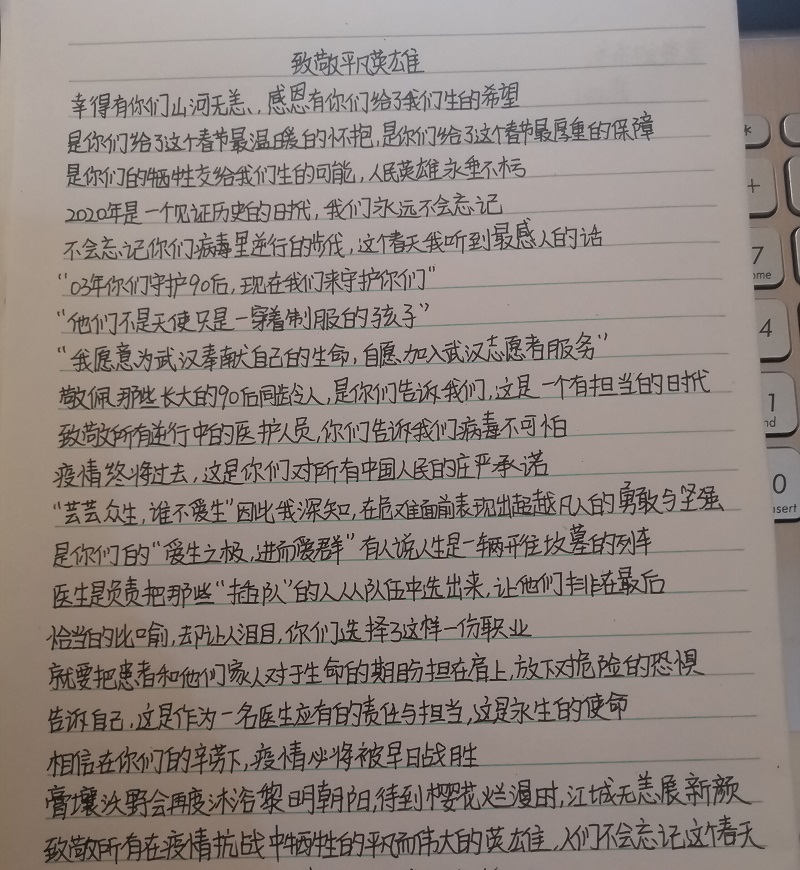 致敬平凡英雄
幸得有你们山河无恙、感恩有你们给了我们生的希望
是你们给了这个春节最温暖的怀抱,是你们给了这个春节最厚重的保障
是你们的牺牲交给我们生的可能,人民英雄永垂不朽
2020年是一个见证历史的时代,我们永远不会忘记
不会忘记你们病毒里逆行的步伐,这个春天我听到最感人的话
“03年你们守护90后,现在我们来守护你们”
“他们不是天使只是一穿着制服的孩子”
“我愿意为武汉奉献自己的生命,自愿加入武汉志愿者服务”
敬佩那些长大的90后同龄人,是你们告诉我们,这是一个有担当的时代
致敬所有逆行中的医护人员,你们告诉我们病毒不可怕
疫情终将过去,这是你们对所有中国人民的庄严承诺
“芸芸众生,谁不爱生”因此我深知,在危难面前表现出超越凡人的勇敢与坚强
是你们的“爱生之极,进而爱群”有人说人生是一辆开往坟墓的列车
医生是负责把那些“插队”的人从队伍中选出来,让他们排在最后
恰当的比喻,却让人泪目,你们选择了这样一份职业
就要把患者和他们家人对于生命的期盼担在肩上,放下对危险的恐惧
告诉自己,这是作为一名医生应有的责任与担当,这是永生的使命
相信在你们的辛劳下,疫情必将被早日战胜
膏壤沃野会再度沐浴黎明朝阳,待到樱花烂漫时,江城无恙展新颜
致敬所有在疫情抗战中牺牲的平凡而伟大的英雄,人们不会忘记这个春天
*
+
7
4
1
0